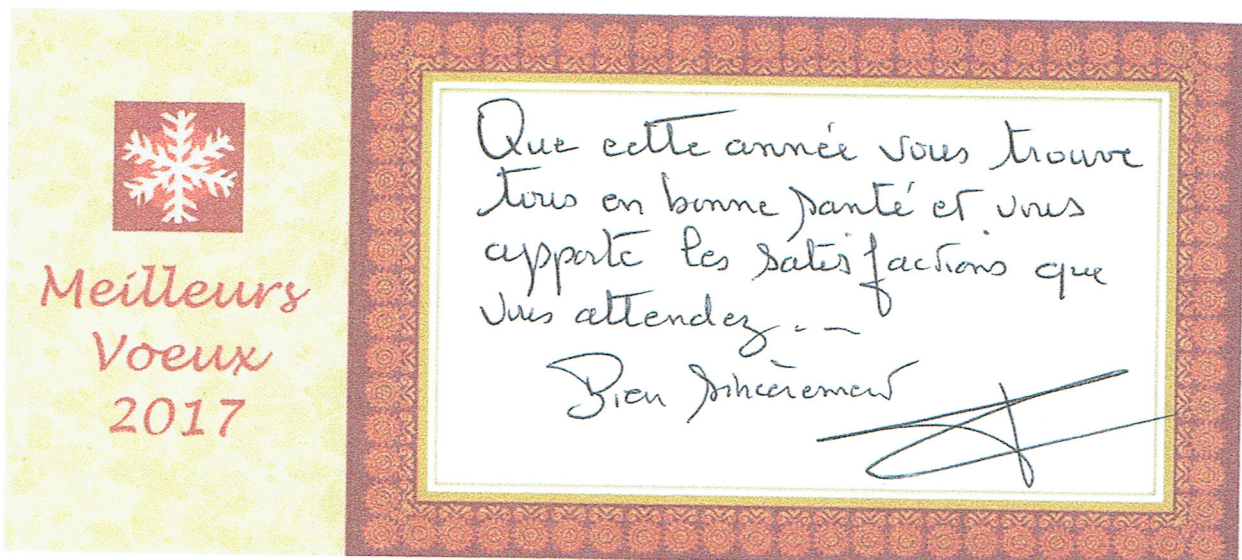 Meilleurs
Voeux
2017
Que cette année vous trouve
tous en bonne santé et vous
apporte les satisfactions que
vous attendez...
Bien sincèrement